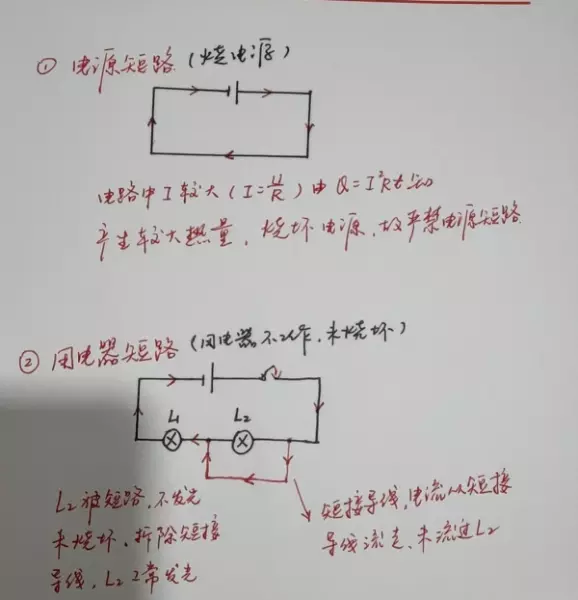 ① 电源短路（烧电源）
电路中I较大（I=U/R）由Q=I²Rt知
产生较大热量，烧坏电源，故严禁电源短路
② 用电器短路（用电器不工作，未烧坏）
L₁ L₂
L₂被短路，不发光
未烧坏，拆除短接
导线，L₂正常发光
短接导线，电流从短接
导线流走，未流过L₂